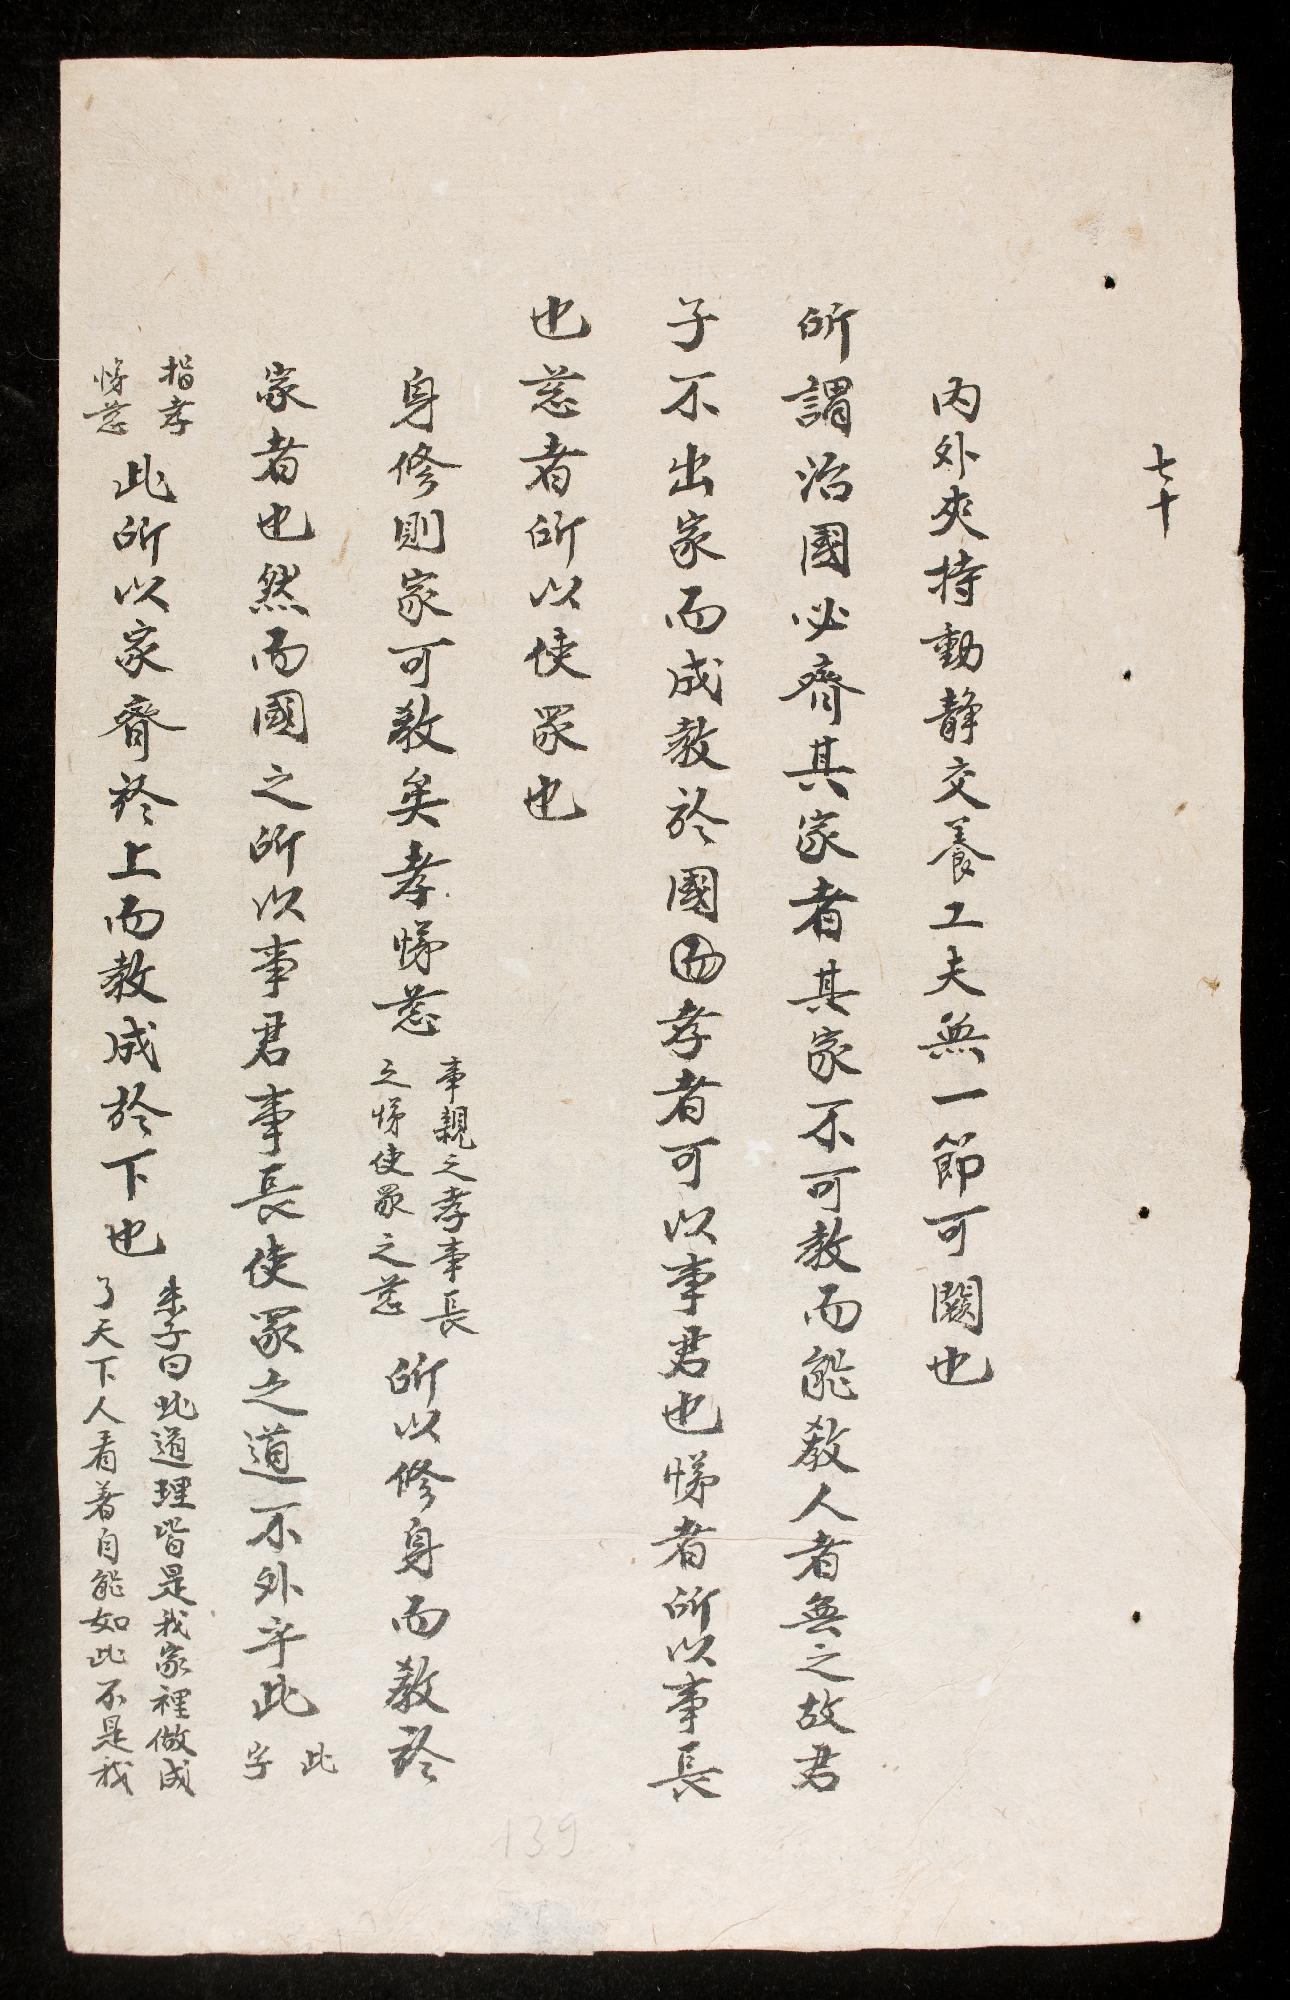 七十
內外夾持動静交養工夫無一節可闕也
所謂治國必齊其家者其家不可教而能教人者無之故君
子不出家而成教於國而孝者可以事君也悌者所以事長
也慈者所以使衆也
身修則家可教矣孝悌慈
事親之孝事長
之悌使衆之慈
所以修身而教於
家者也然而國之所以事君事長使衆之道不外乎此
此
字
指孝
悌慈
此所以家齊於上而教成於下也
朱子曰此道理皆是我家裡做成
了天下人看着自能如此不是我
139